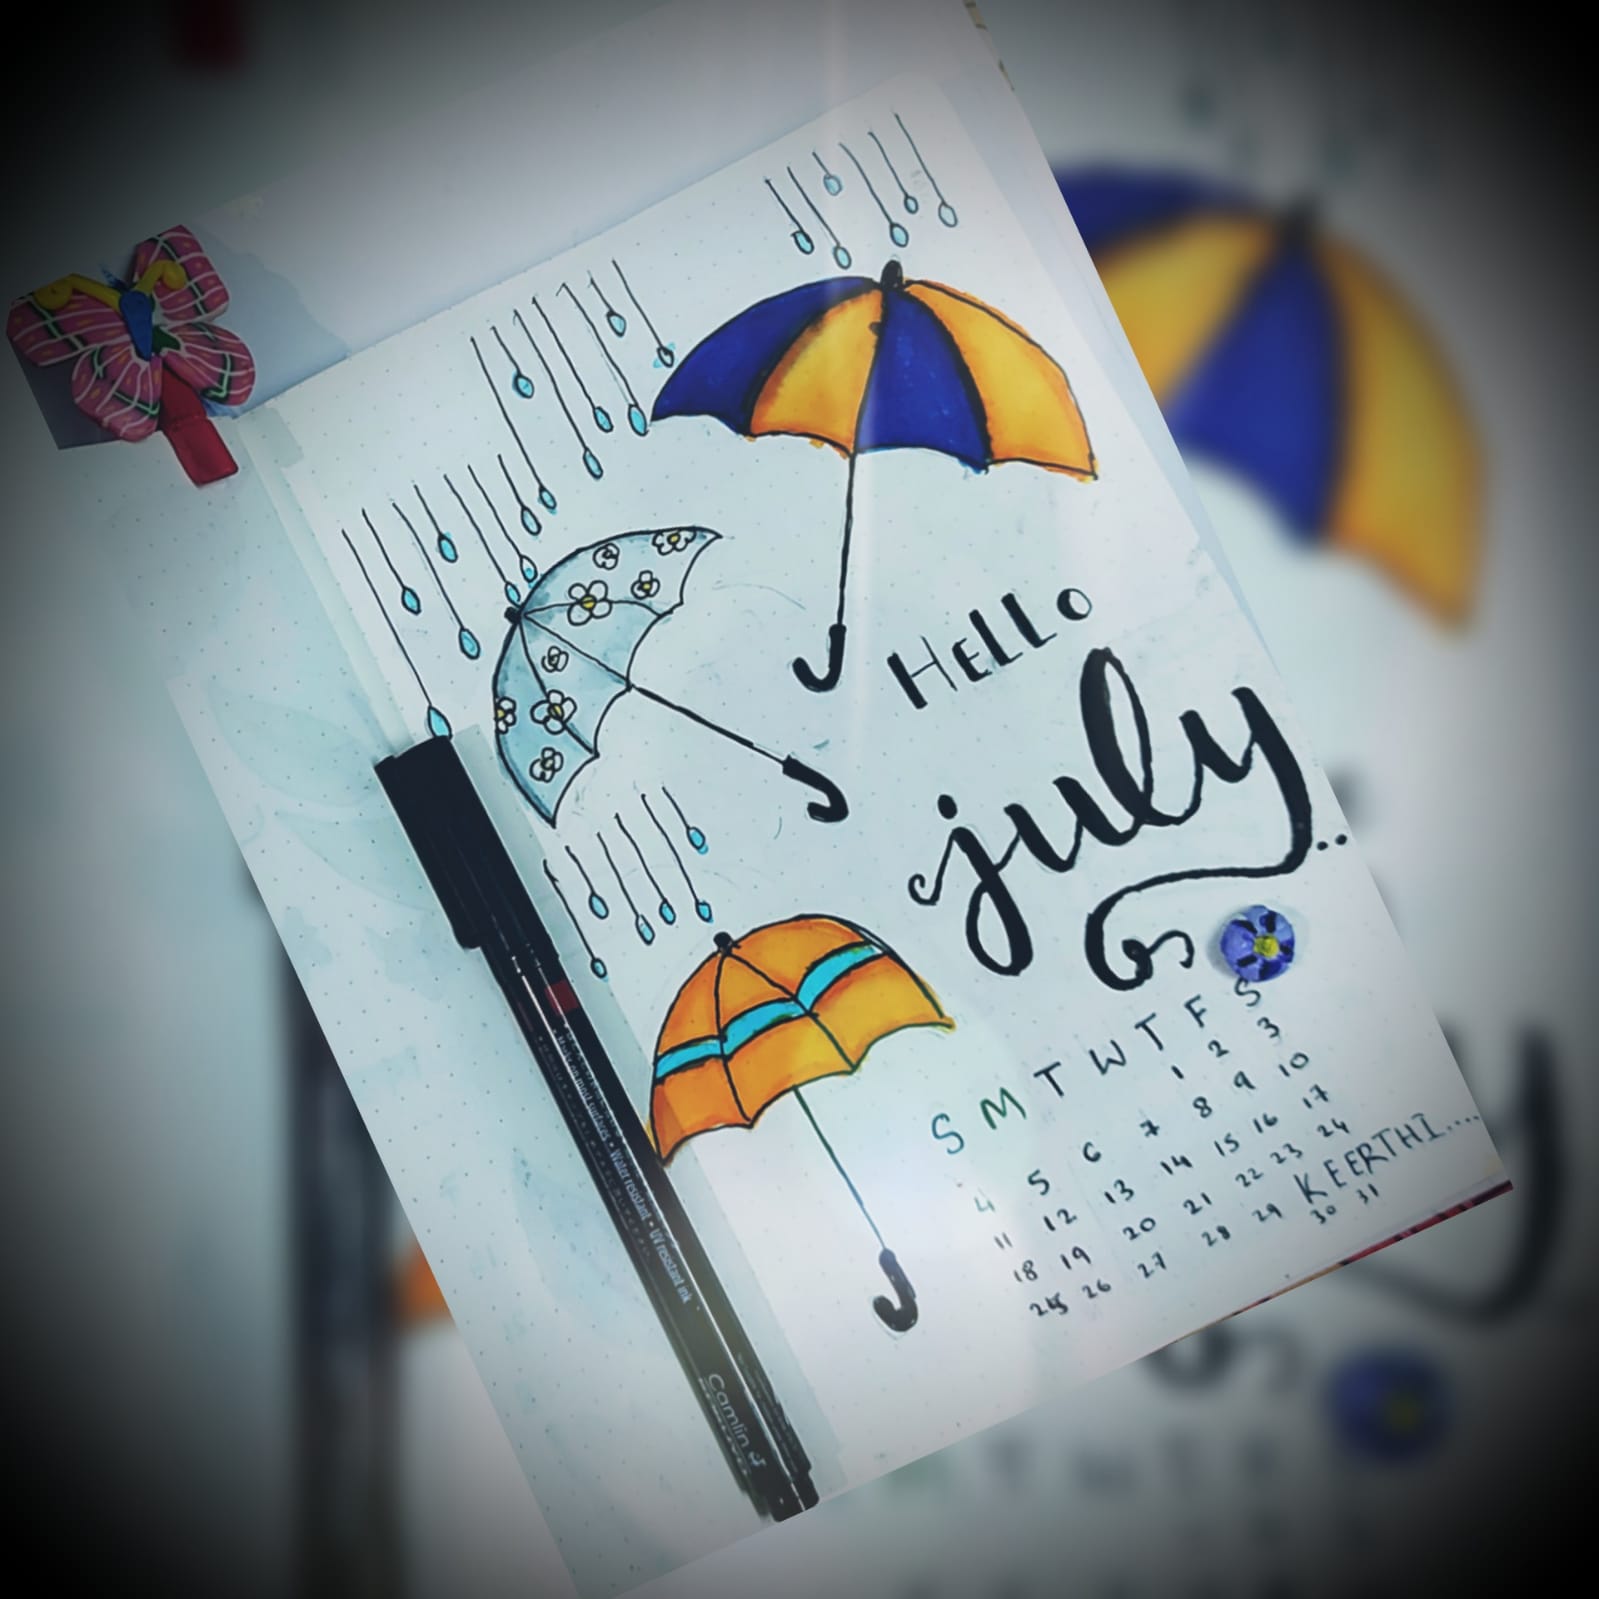 HELLO
july..
S M T W T F S
1 2 3
4 5 6 7 8 9 10
11 12 13 14 15 16 17
18 19 20 21 22 23 24
25 26 27 28 29 30 31
KEERTHI....
Marks on most surfaces • Water resistant • UV resistant ink
Camlin